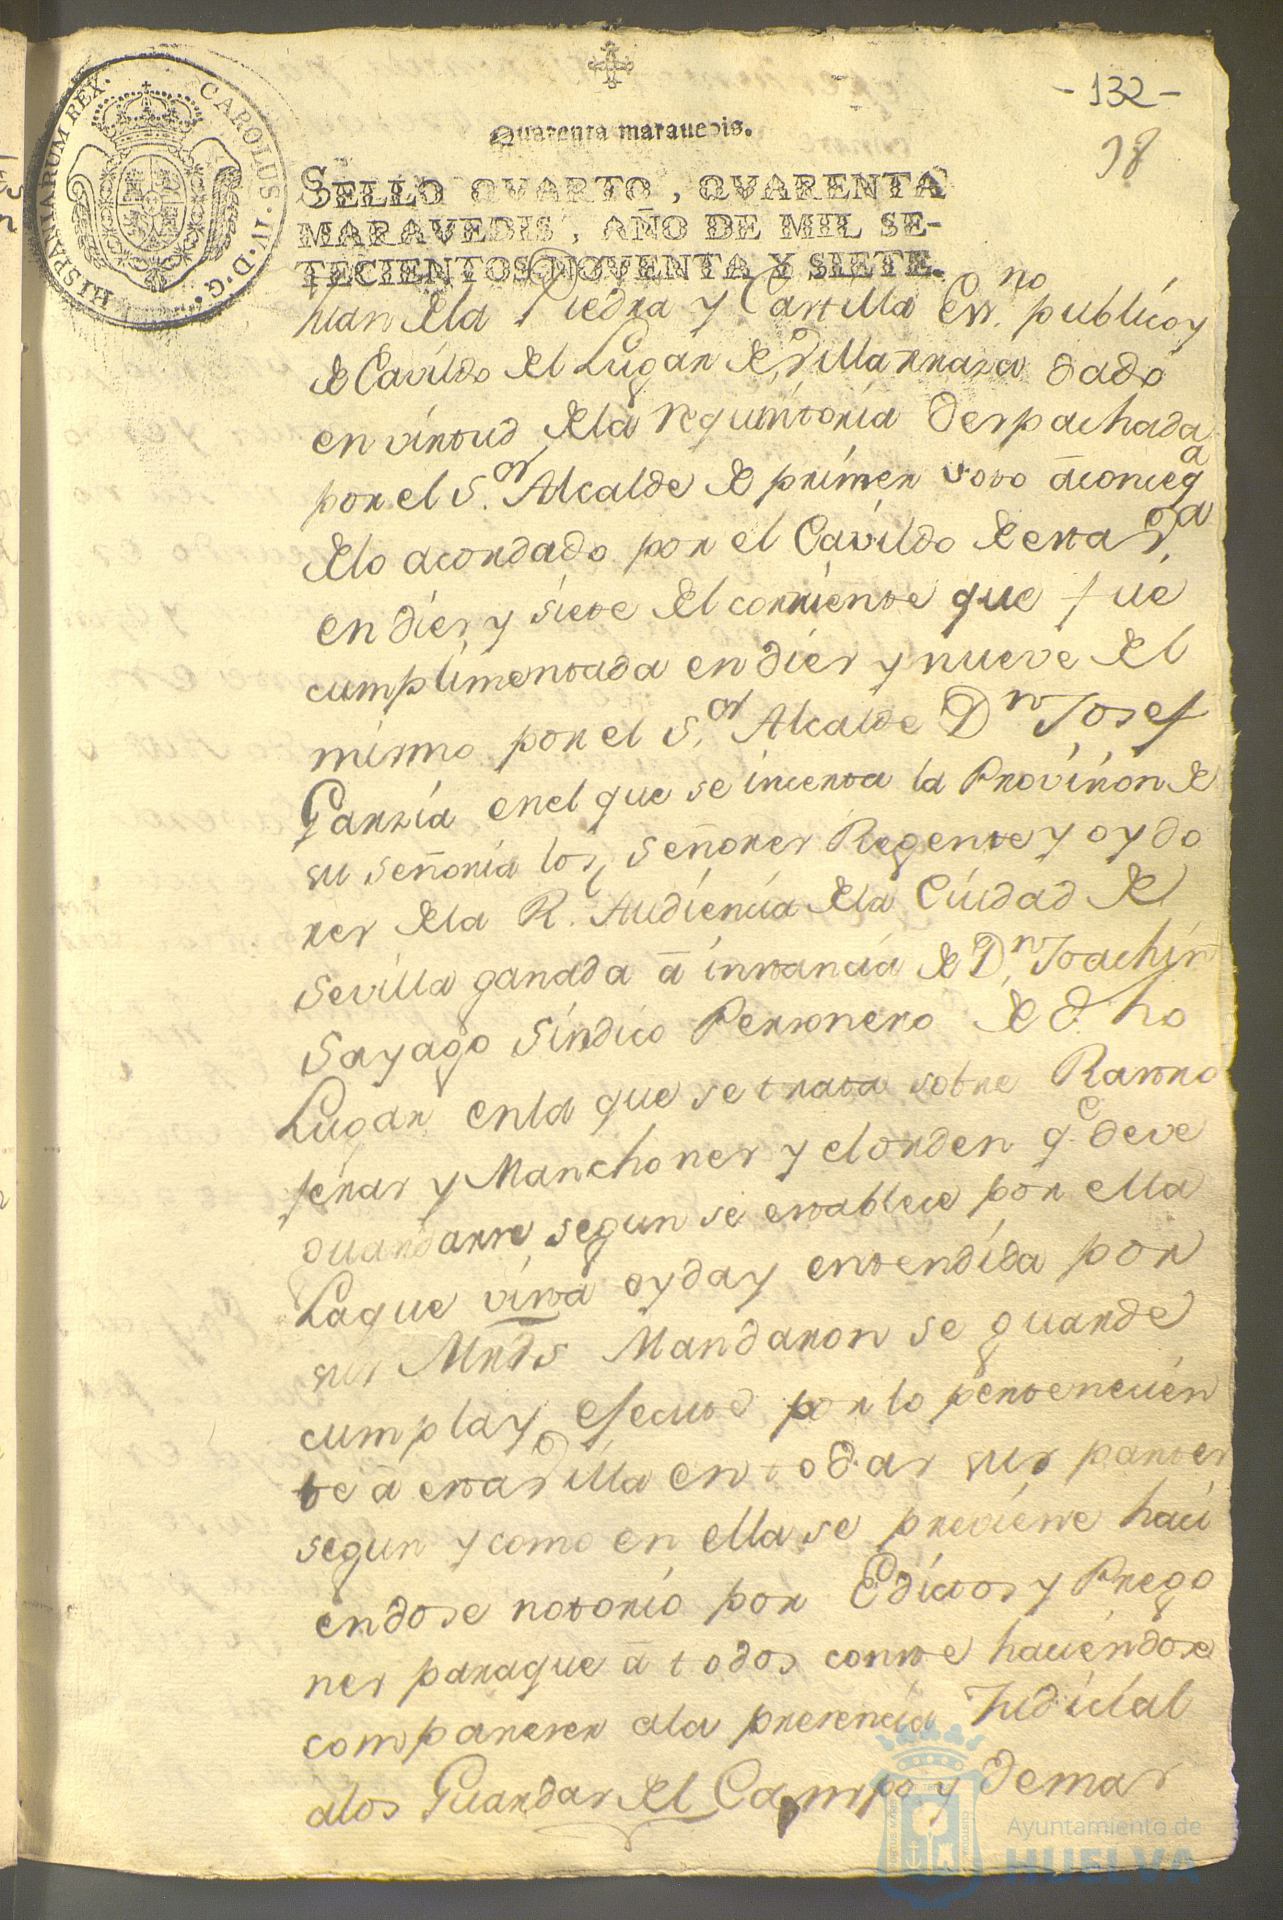 -132-
98
HISPANIARUM REX. CAROLUS·IV·D·G·
Quarenta marauedis.
SELLO QVARTO, QVARENTA
MARAVEDIS, AÑO DE MIL SE-
TECIENTOS NOVENTA Y SIETE.
Juan de la Piedra y Cartilla Ess.no publico y
de Cavildo del Lugar de Villarrasa dado
en virtud de la requisitoria despachada
por el S.or Alcalde de primer voto ā conseq.a
de lo acordado por el Cavildo de esta V.a
en dies y siete del corriente que fué
cumplimentada en dies y nueve del
mismo por el S.or Alcalde D.n Josef
Garzia en el que se incerta la Provision de
su señoria los señores Regente y oydo
res de la R. Audiencia de la Ciudad de
Sevilla ganada ā instancia de D.n Joachin
Sayago Sindico Personero de d.ho
Lugar en la que se trata sobre Rastro
feras y Manchones y el orden q.e deve
guardarse segun se establece por ella
La que vista oyda y entendida por
sus Mrds Mandaron se guarde
cumpla y efecute por lo pertenecien
te ā esta Villa en todas sus partes
segun y como en ella se previene haci
endose notorio por Edictos y Prego
nes para que ā todos conste haciendose
compareser a la presencia Judicial
a los Guardas del Campo y demas
Ayuntamiento de
HUELVA